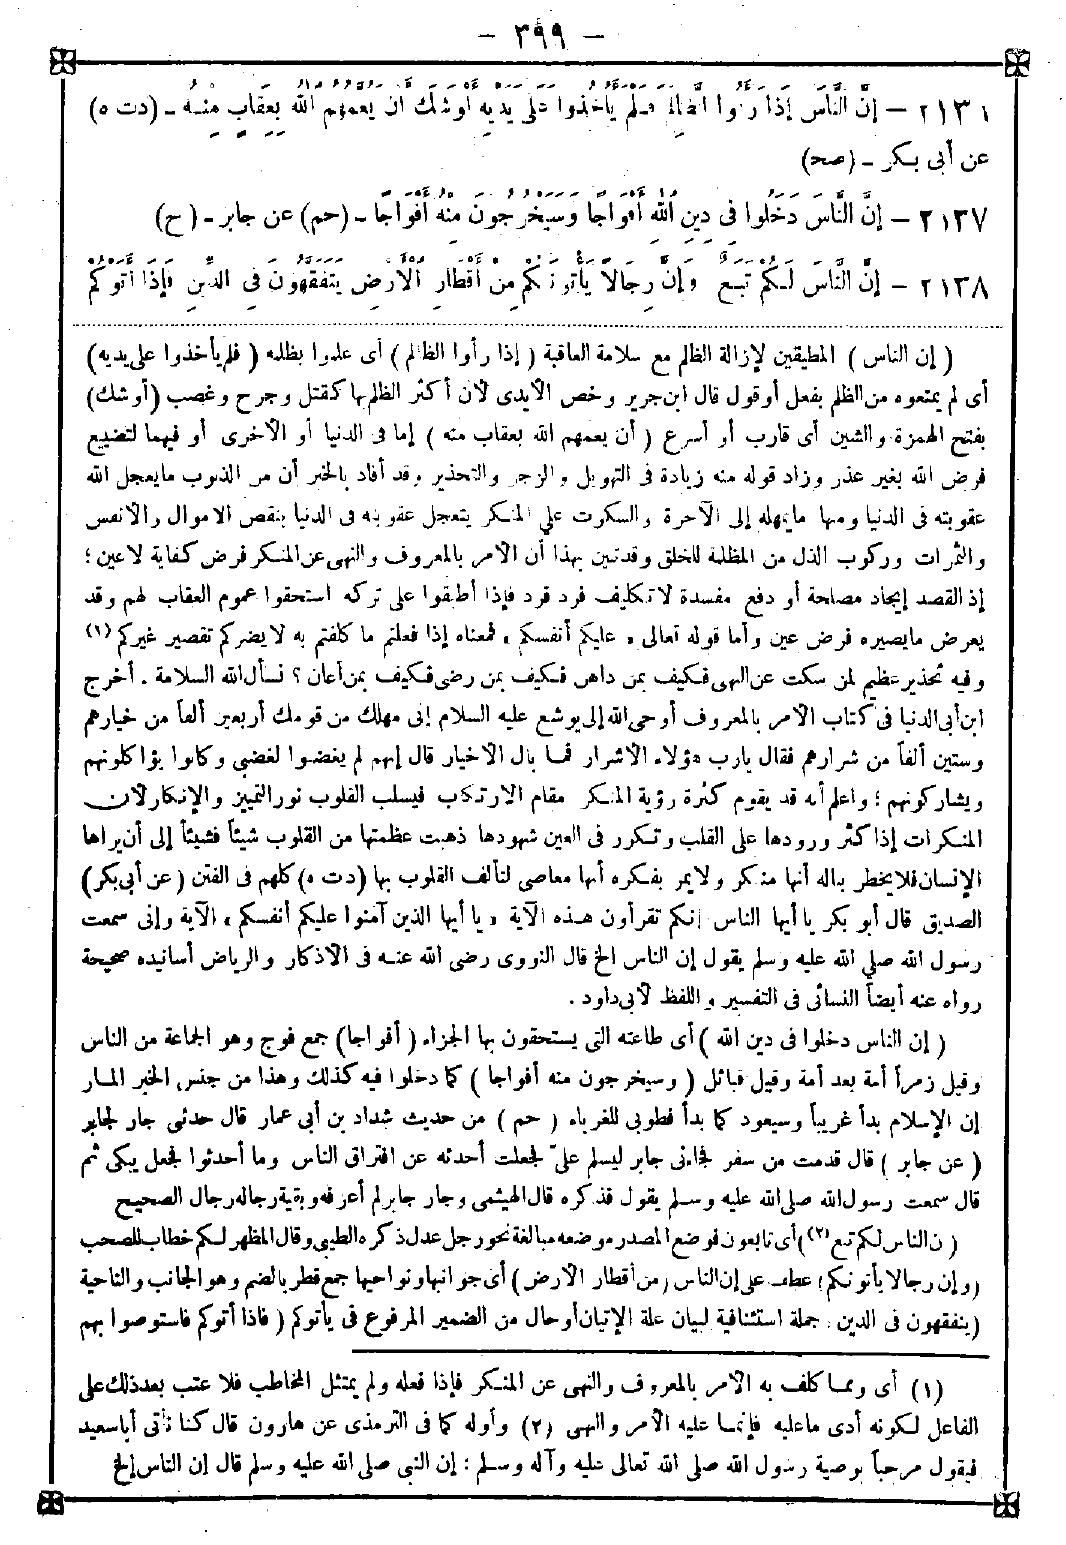 – ٣٩٩ –
٢١٣٦ – إِنَّ النَّاسَ إِذَا رَأَوُا الظَّالِمَ فَلَمْ يَأْخُذُوا عَلَى يَدَيْهِ أَوْشَكَ أَنْ يَعُمَّهُمُ اللهُ بِعِقَابٍ مِنْهُ – (د ت ه)
عن أبى بكر – (صح)
٢١٣٧ – إِنَّ النَّاسَ دَخَلُوا فِى دِينِ اللهِ أَفْوَاجًا وَسَيَخْرُجُونَ مِنْهُ أَفْوَاجًا – (حم) عن جابر – (ح)
٢١٣٨ – إِنَّ النَّاسَ لَكُمْ تَبَعٌ وَإِنَّ رِجَالاً يَأْتُونَكُمْ مِنْ أَقْطَارِ الأَرْضِ يَتَفَقَّهُونَ فِى الدِّينِ فَإِذَا أَتَوْكُمْ
( إن الناس ) المطيقين لإزالة الظلم مع سلامة العاقبة ( إذا رأوا الظالم ) أى علموا بظلمه ( فلم يأخذوا على يديه )
أى لم يمنعوه من الظلم بفعل أو قول قال ابن جرير وخص الأيدى لأن أكثر الظلم بها كقتل وجرح وغصب (أوشك)
بفتح الهمزة والشين أى قارب أو أسرع ( أن يعمهم الله بعقاب منه ) إما فى الدنيا أو الأخرى أو فيهما لتضييع
فرض الله بغير عذر وزاد قوله منه زيادة فى التهويل والزجر والتحذير وقد أفاد بالخبر أن من الذنوب ما يعجل الله
عقوبته فى الدنيا ومنها ما يمهله إلى الآخرة والسكوت على المنكر يتعجل عقوبته فى الدنيا بنقص الاموال والانفس
والثمرات وركوب الذل من المظلمة للخلق وقد تبين بهذا أن الأمر بالمعروف والنهى عن المنكر فرض كفاية لا عين ؛
إذ القصد إيجاد مصلحة أو دفع مفسدة لا تكليف فرد فرد فإذا أطبقوا على تركه استحقوا عموم العقاب لهم وقد
يعرض ما يصيره فرض عين وأما قوله تعالى « عليكم أنفسكم » فمعناه إذا فعلتم ما كلفتم به لا يضركم تقصير غيركم (١)
وفيه تحذير عظيم لمن سكت عن النهى فكيف بمن داهن فكيف بمن رضى فكيف بمن أعان ؟ نسأل الله السلامة . أخرج
ابن أبى الدنيا فى كتاب الأمر بالمعروف أوحى الله إلى يوشع عليه السلام إنى مهلك من قومك أربعين ألفاً من خيارهم
وستين ألفاً من شرارهم فقال يارب هؤلاء الأشرار فما بال الاخيار قال إنهم لم يغضبوا لغضبى وكانوا يؤاكلونهم
ويشاركونهم ؛ واعلم أنه قد يقوم كثرة رؤية المنكر مقام الارتكاب فيسلب القلوب نور التمييز والإنكار لأن
المنكرات إذا كثر ورودها على القلب وتكرر فى العين شهودها ذهبت عظمتها من القلوب شيئاً فشيئاً إلى أن يراها
الإنسان فلا يخطر بباله أنها منكر ولا يمر بفكره أنها معاصى لتألف القلوب بها (د ت ه) كلهم فى الفتن (عن أبى بكر)
الصديق قال أبو بكر يا أيها الناس إنكم تقرأون هذه الآية « يا أيها الذين آمنوا عليكم أنفسكم » الآية وإنى سمعت
رسول الله صلى الله عليه وسلم يقول إن الناس الخ قال النووى رضى الله عنه فى الأذكار والرياض أسانيده صحيحة
رواه عنه أيضاً النسائى فى التفسير واللفظ لأبى داود .
( إن الناس دخلوا فى دين الله ) أى طاعته التى يستحقون بها الجزاء ( أفواجا ) جمع فوج وهو الجماعة من الناس
وقيل زمراً أمة بعد أمة وقيل قبائل ( وسيخرجون منه أفواجا ) كما دخلوا فيه كذلك وهذا من جنس الخبر المار
إن الإسلام بدأ غريباً وسيعود كما بدأ فطوبى للغرباء ( حم ) من حديث شداد بن أبى عمار قال حدثنى جار لجابر
( عن جابر ) قال قدمت من سفر فجاءنى جابر ليسلم علىّ فجعلت أحدثه عن افتراق الناس وما أحدثوا فجعل يبكى ثم
قال سمعت رسول الله صلى الله عليه وسلم يقول فذكره قال الهيثمى وجار جابر لم أعرفه وبقية رجاله رجال الصحيح
( ن الناس لكم تبع (٢) ) أى تابعون فوضع المصدر موضعه مبالغة نحو رجل عدل ذكره الطيبى وقال المظهر لكم خطاب للصحب
(وإن رجالا يأتونكم) عطف على إن الناس (من أقطار الأرض) أى جوانبها ونواحيها جمع قطر بالضم وهو الجانب والناحية
(يتفقهون فى الدين) جملة استئنافية لبيان علة الإتيان أو حال من الضمير المرفوع فى يأتوكم ( فاذا أتوكم فاستوصوا بهم
(١) أى ومما كلف به الأمر بالمعروف والنهى عن المنكر فإذا فعله ولم يمتثل المخاطب فلا عتب بعد ذلك على
الفاعل لكونه أدى ما عليه فإنما عليه الأمر والنهى (٢) وأوله كما فى الترمذى عن هارون قال كنا نأتى أبا سعيد
فيقول مرحباً بوصية رسول الله صلى الله تعالى عليه وآله وسلم : إن النبى صلى الله عليه وسلم قال إن الناس إلخ